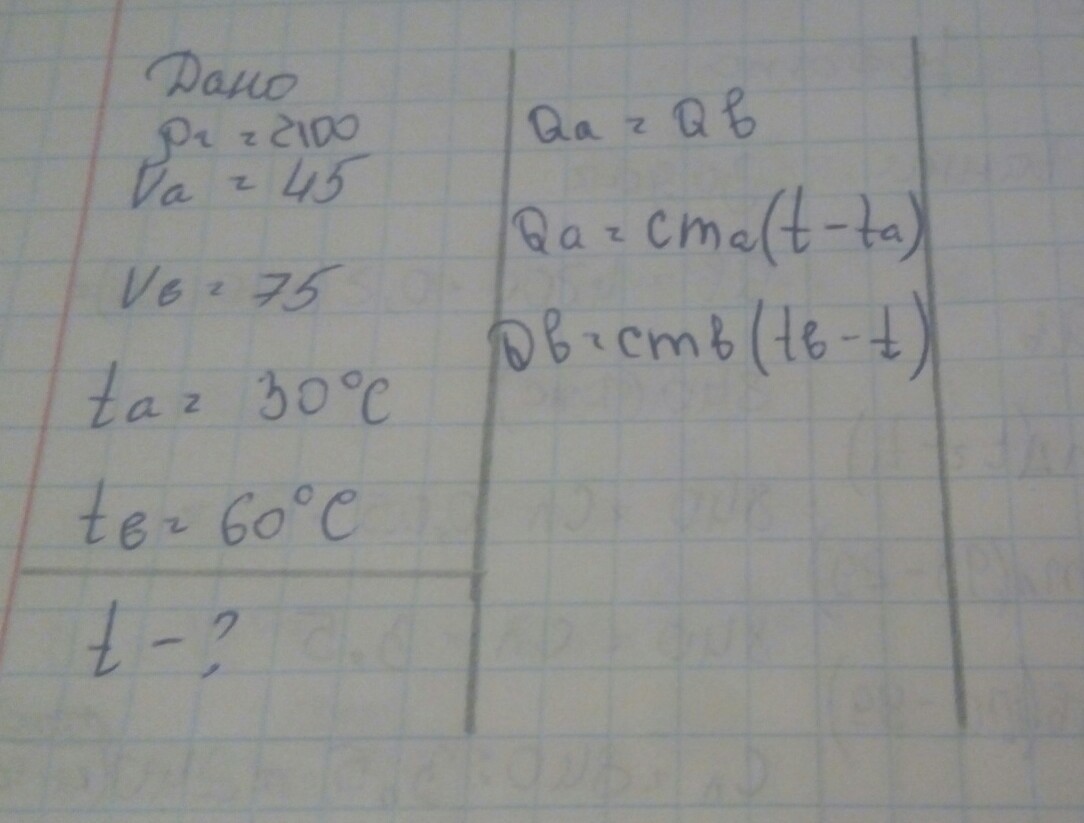 Дано
Va = 45
Vв = 75
ta = 30°C
tв = 60°C
t - ?
Qa = Qв
Qa = cma(t - ta)
Qв = cmв(tв - t)